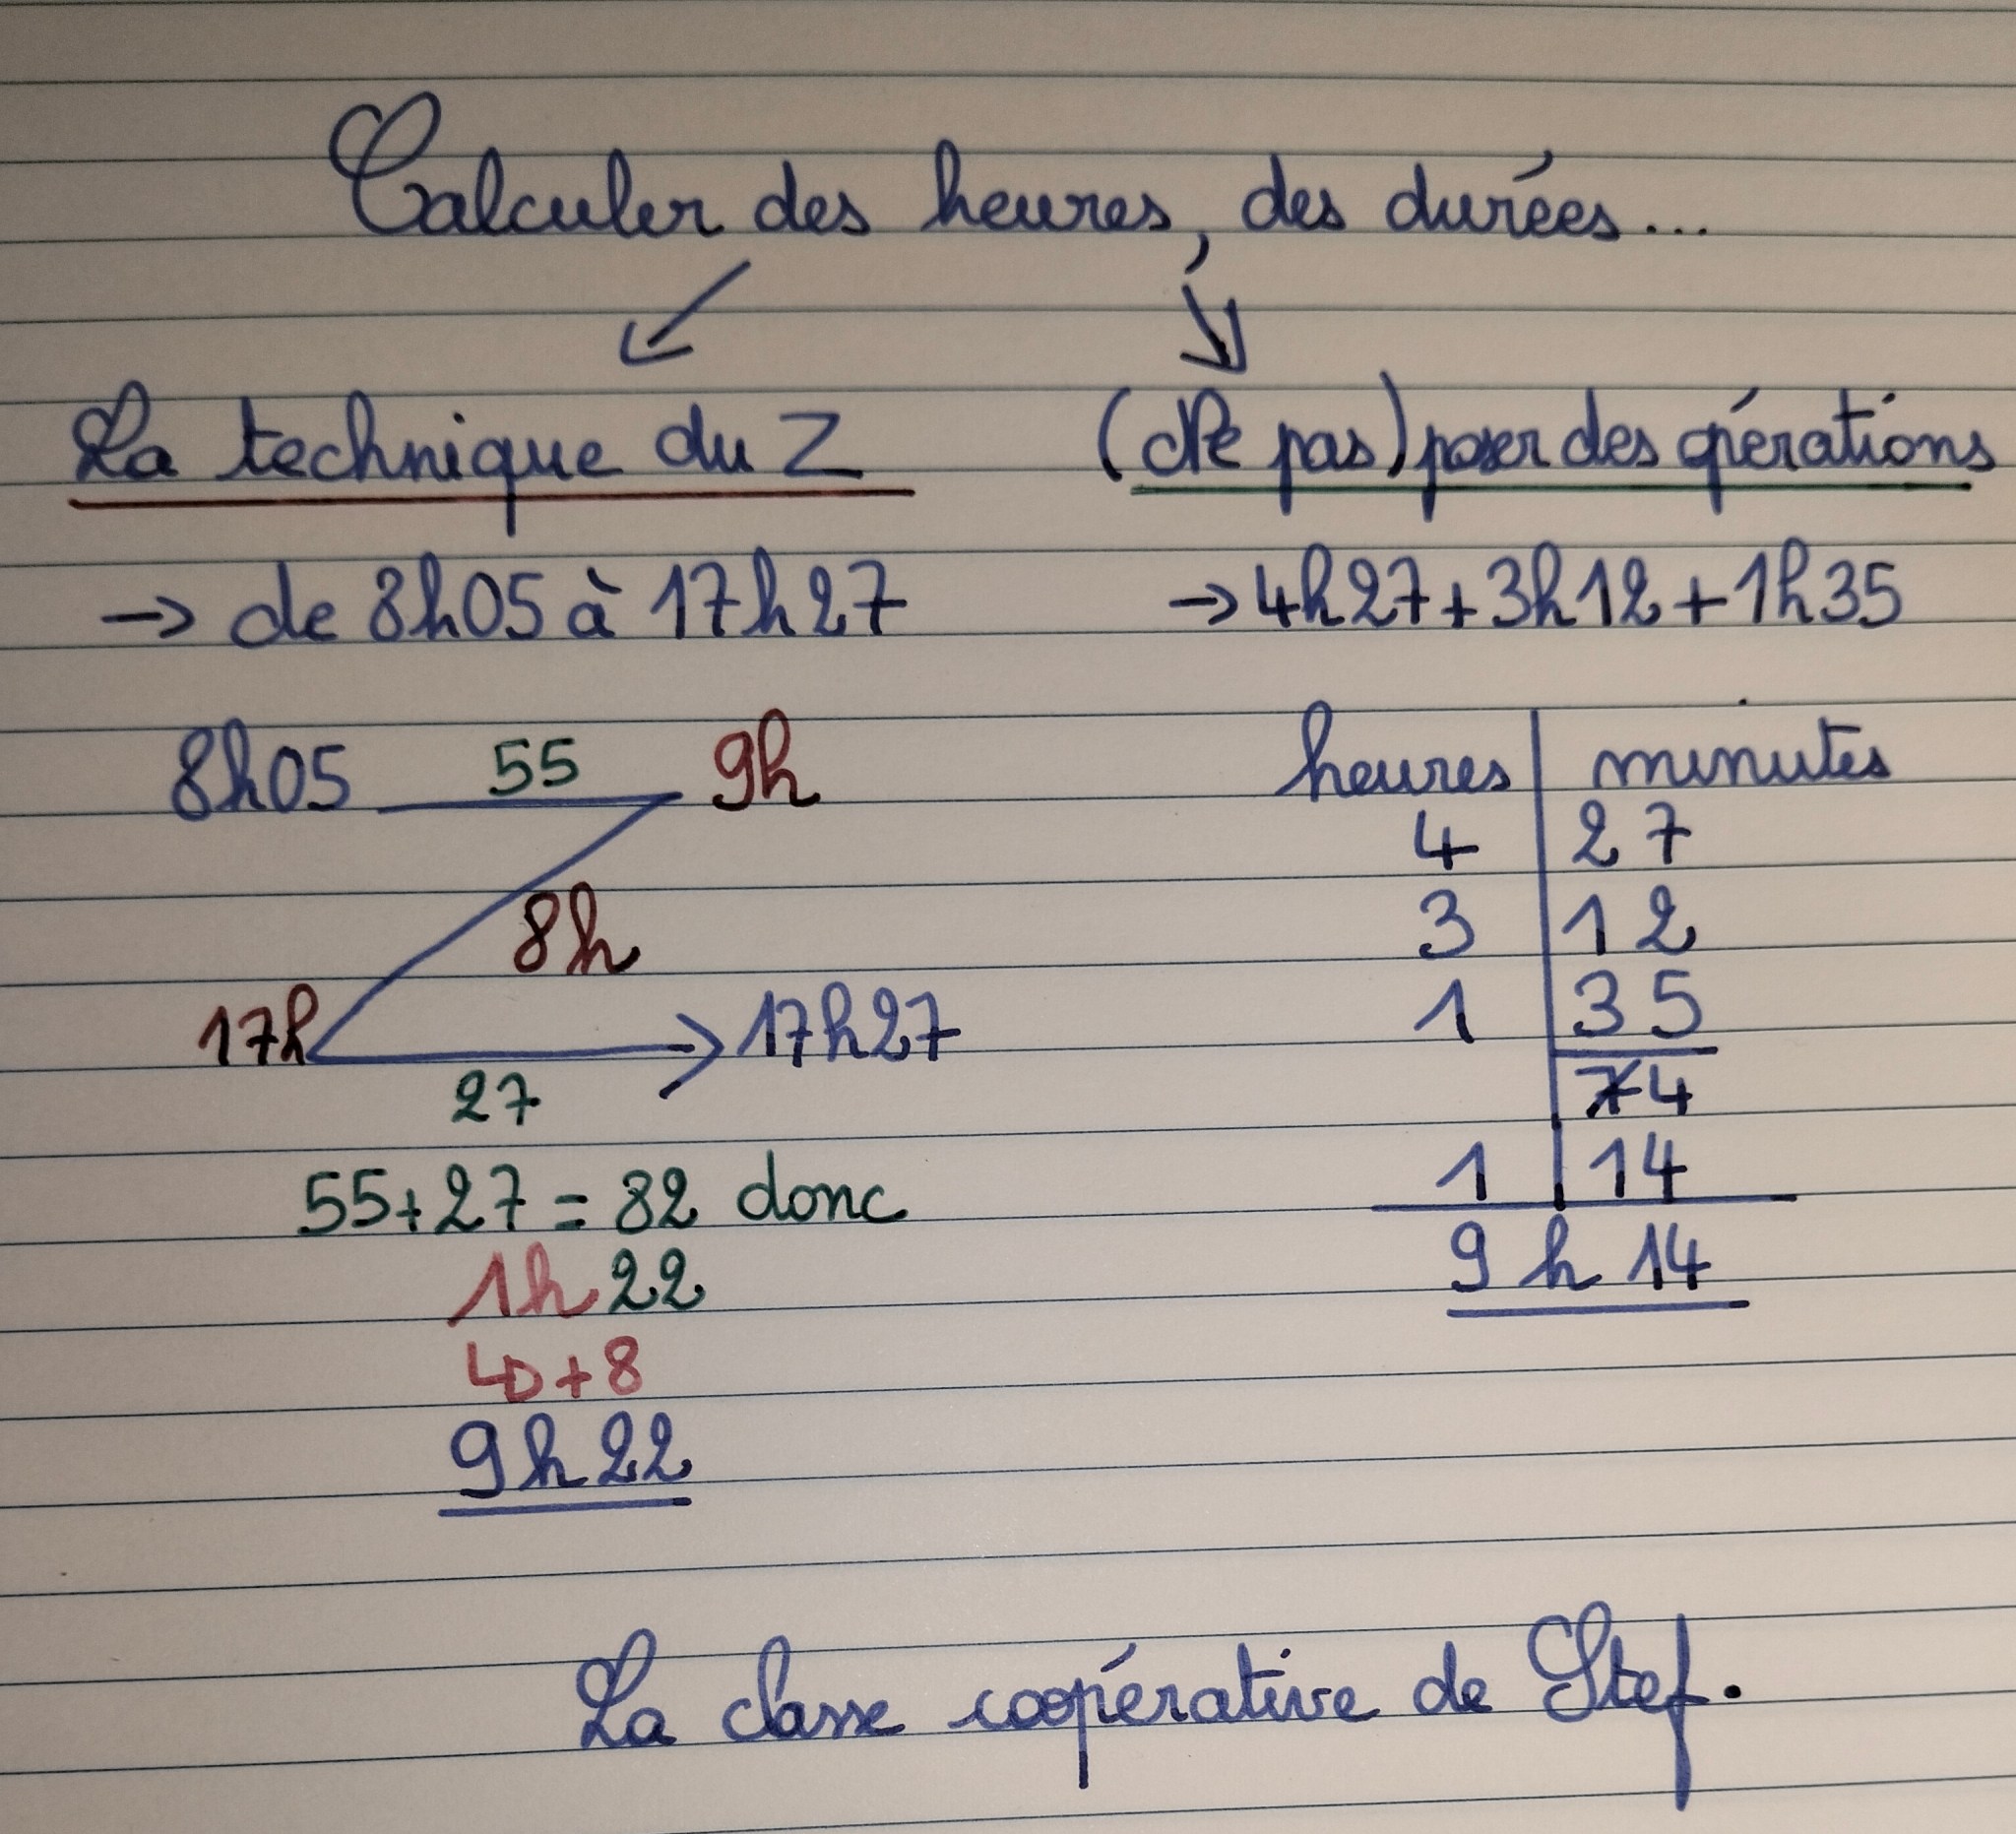 Calculer des heures, des durées...
La technique du Z
→ de 8h05 à 17h27
8h05 55 9h
8h
17h → 17h27
27
55+27 = 82 donc
1h 22
↳ + 8
9h22
(Ne pas) poser des opérations
→ 4h27+3h12+1h35
heures | minutes
4 | 27
3 | 12
1 | 35
74
1 | 14
9 h 14
La classe coopérative de Stef.